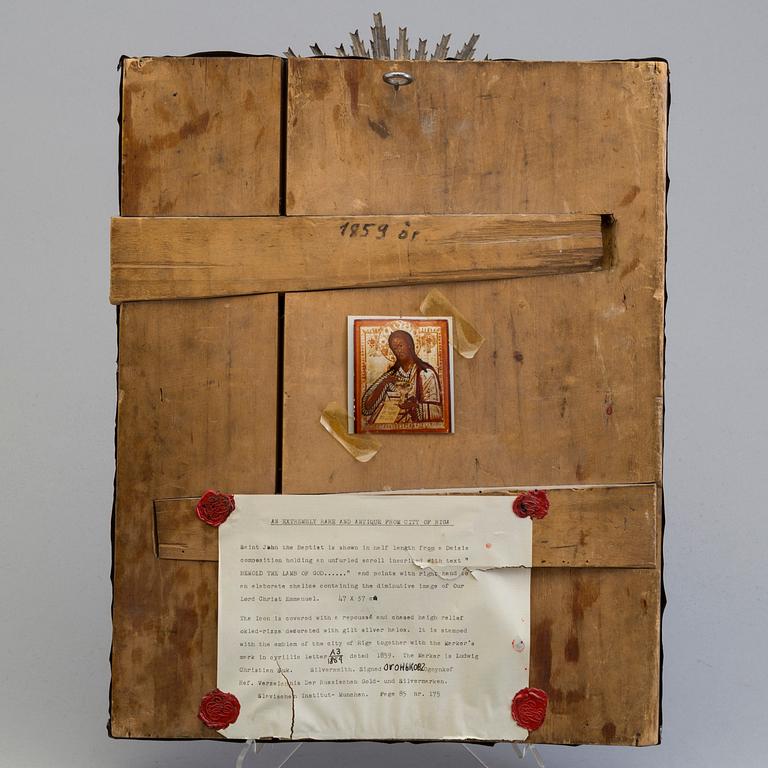 1859 år
AN EXTREMELY RARE AND ANTIQUE FROM CITY OF RIGA
Saint John the Baptist is shown in half length from a Deisis
composition holding an unfurled scroll inscribed with text "
BEHOLD THE LAMB OF GOD......" and points with right hand to
an elaborate chalice containing the diminutive image of Our
Lord Christ Emmanuel. 47 X 37 cm
The Icon is covered with a repoussé and chased heigh relief
oklad-rizza decorated with gilt silver halos. It is stamped
with the emblem of the city of Riga together with the Marker's
mark in cyrillic letter A3/1859 dated 1859. The Marker is Ludwig
Christian Silversmith. Signed
Ref. Verzeichnis Der Russischen Gold- und Silvermarken.
Slavischen Institut- Munchen. Page 85 nr. 175